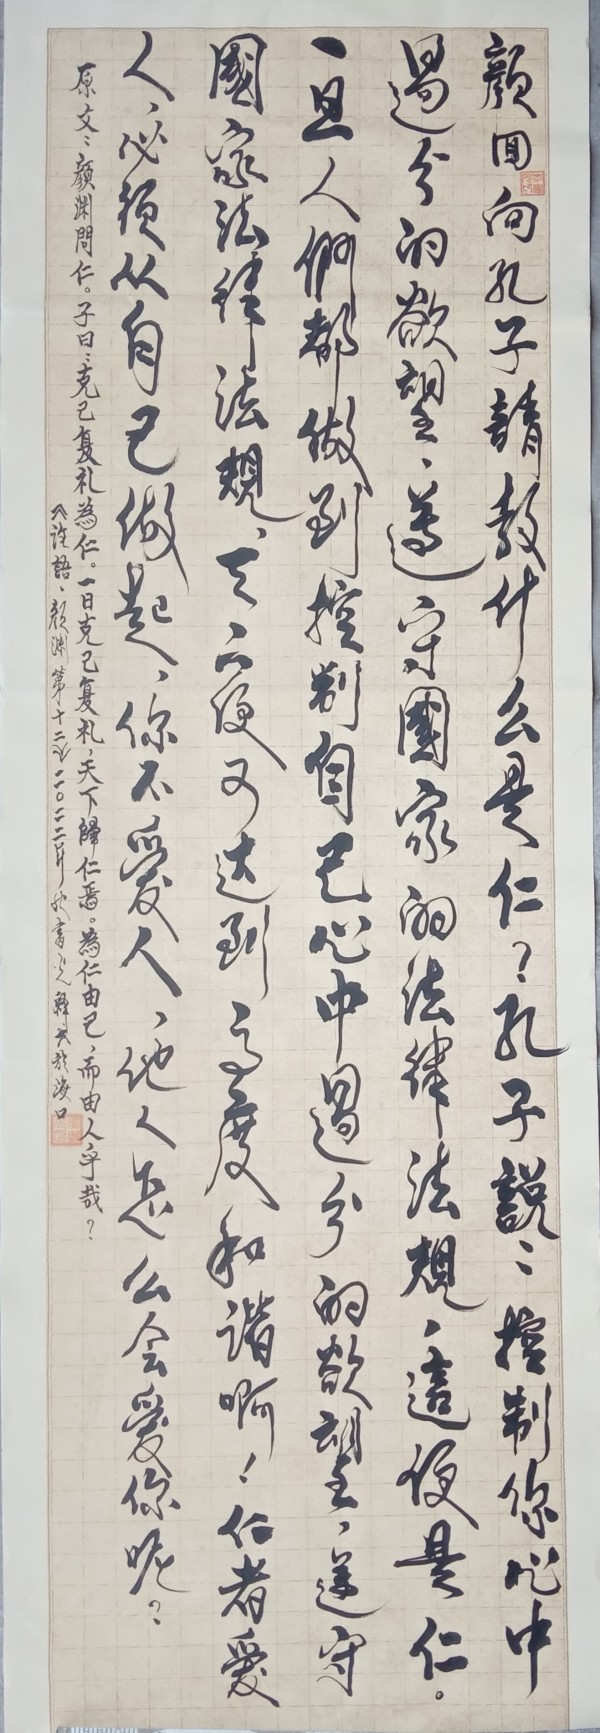 顔回向孔子請教什么是仁？孔子説：控制你心中
過分的欲望、遵守國家的法律法規、這便是仁。
一旦人們都做到控制自己心中過分的欲望、遵守
國家法律法規、天下便可達到高度和谐啊！仁者愛
人、必須从自己做起、你不愛人、他人怎么会愛你呢？
原文：顔渊問仁。子曰：克己复礼為仁。一日克己复礼，天下歸仁焉。為仁由己、而由人乎哉？
論語、顔渊第十二 二〇二二年 書 於海口